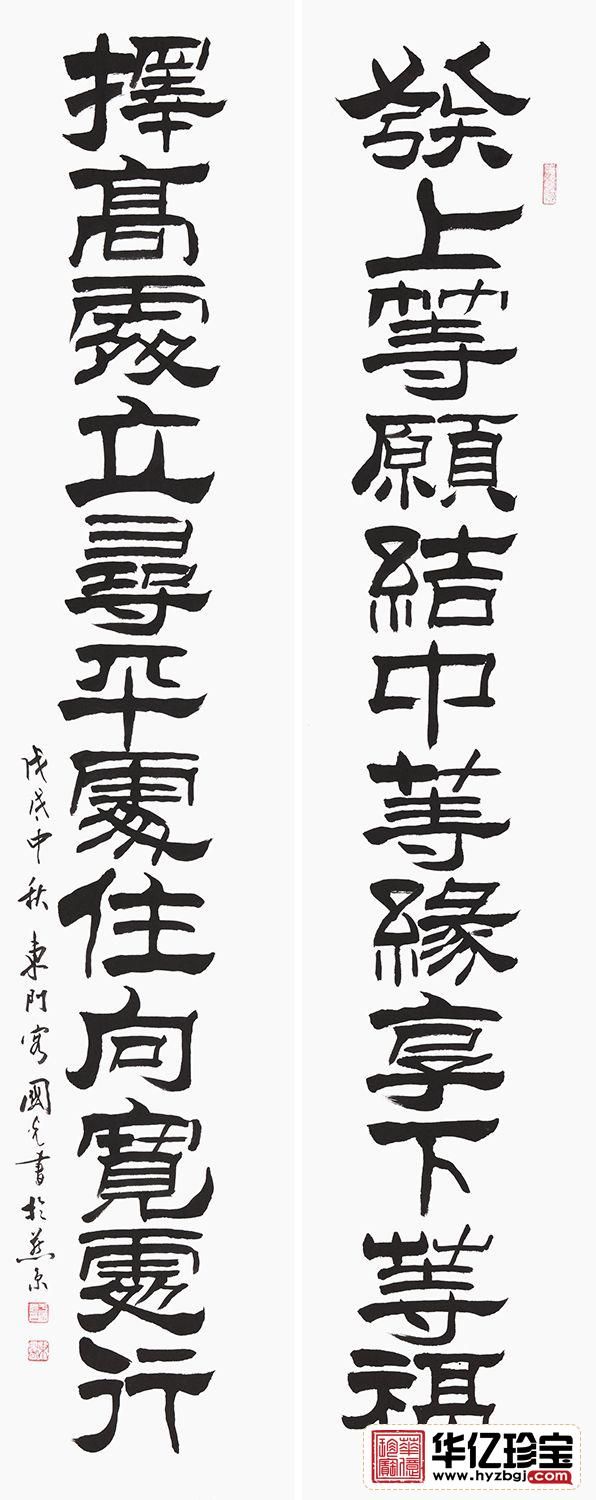 發上等願結中等緣享下等福
擇高處立尋平處住向寬處行
戊戌中秋東門客國光書於燕京
华亿珍宝
www.hyzbgj.com